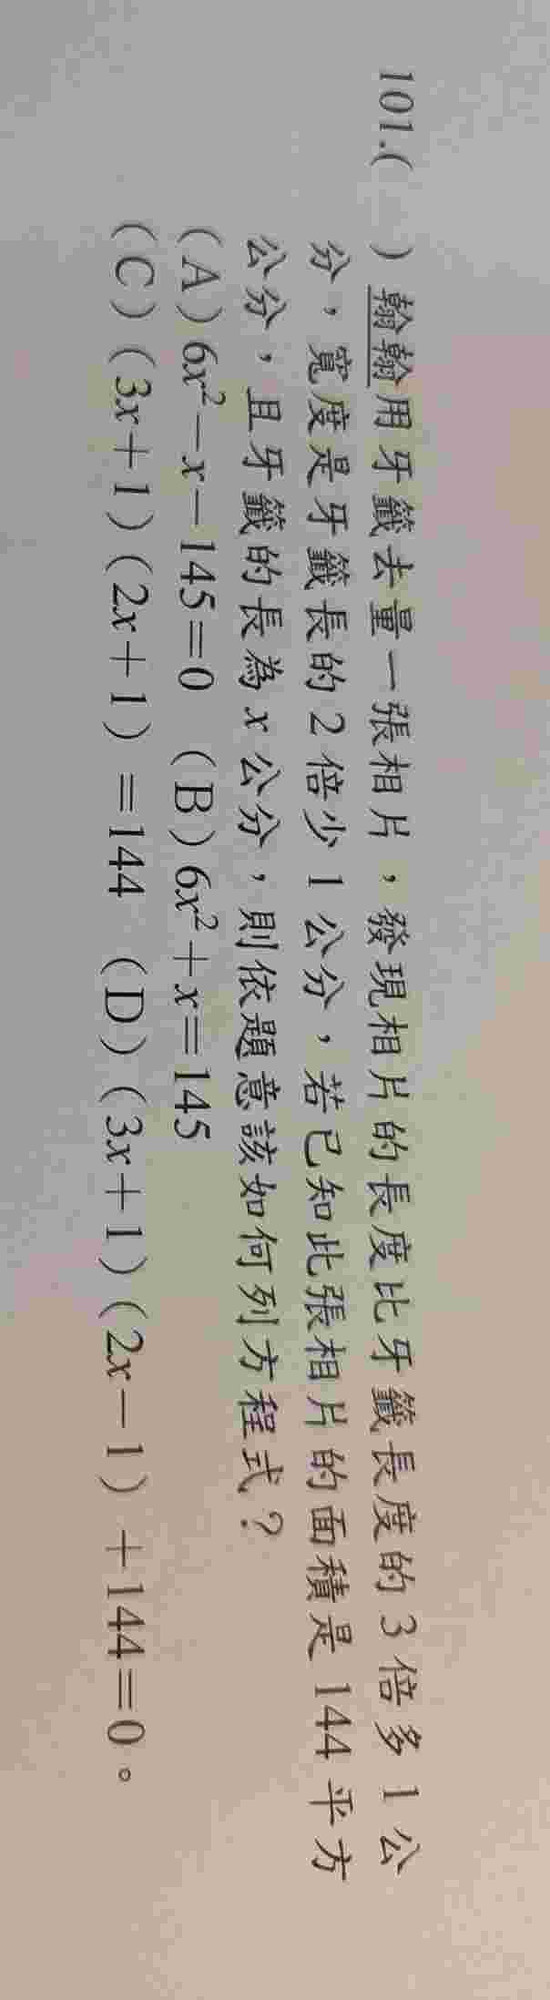 101.(　) 翰翰用牙籤去量一張相片，發現相片的長度比牙籤長度的3倍多1公
分，寬度是牙籤長的2倍少1公分，若已知此張相片的面積是144平方
公分，且牙籤的長為x公分，則依題意該如何列方程式？
(A) 6x²－x－145＝0 (B) 6x²＋x＝145
(C) (3x＋1)(2x＋1)＝144 (D) (3x＋1)(2x－1)＋144＝0。